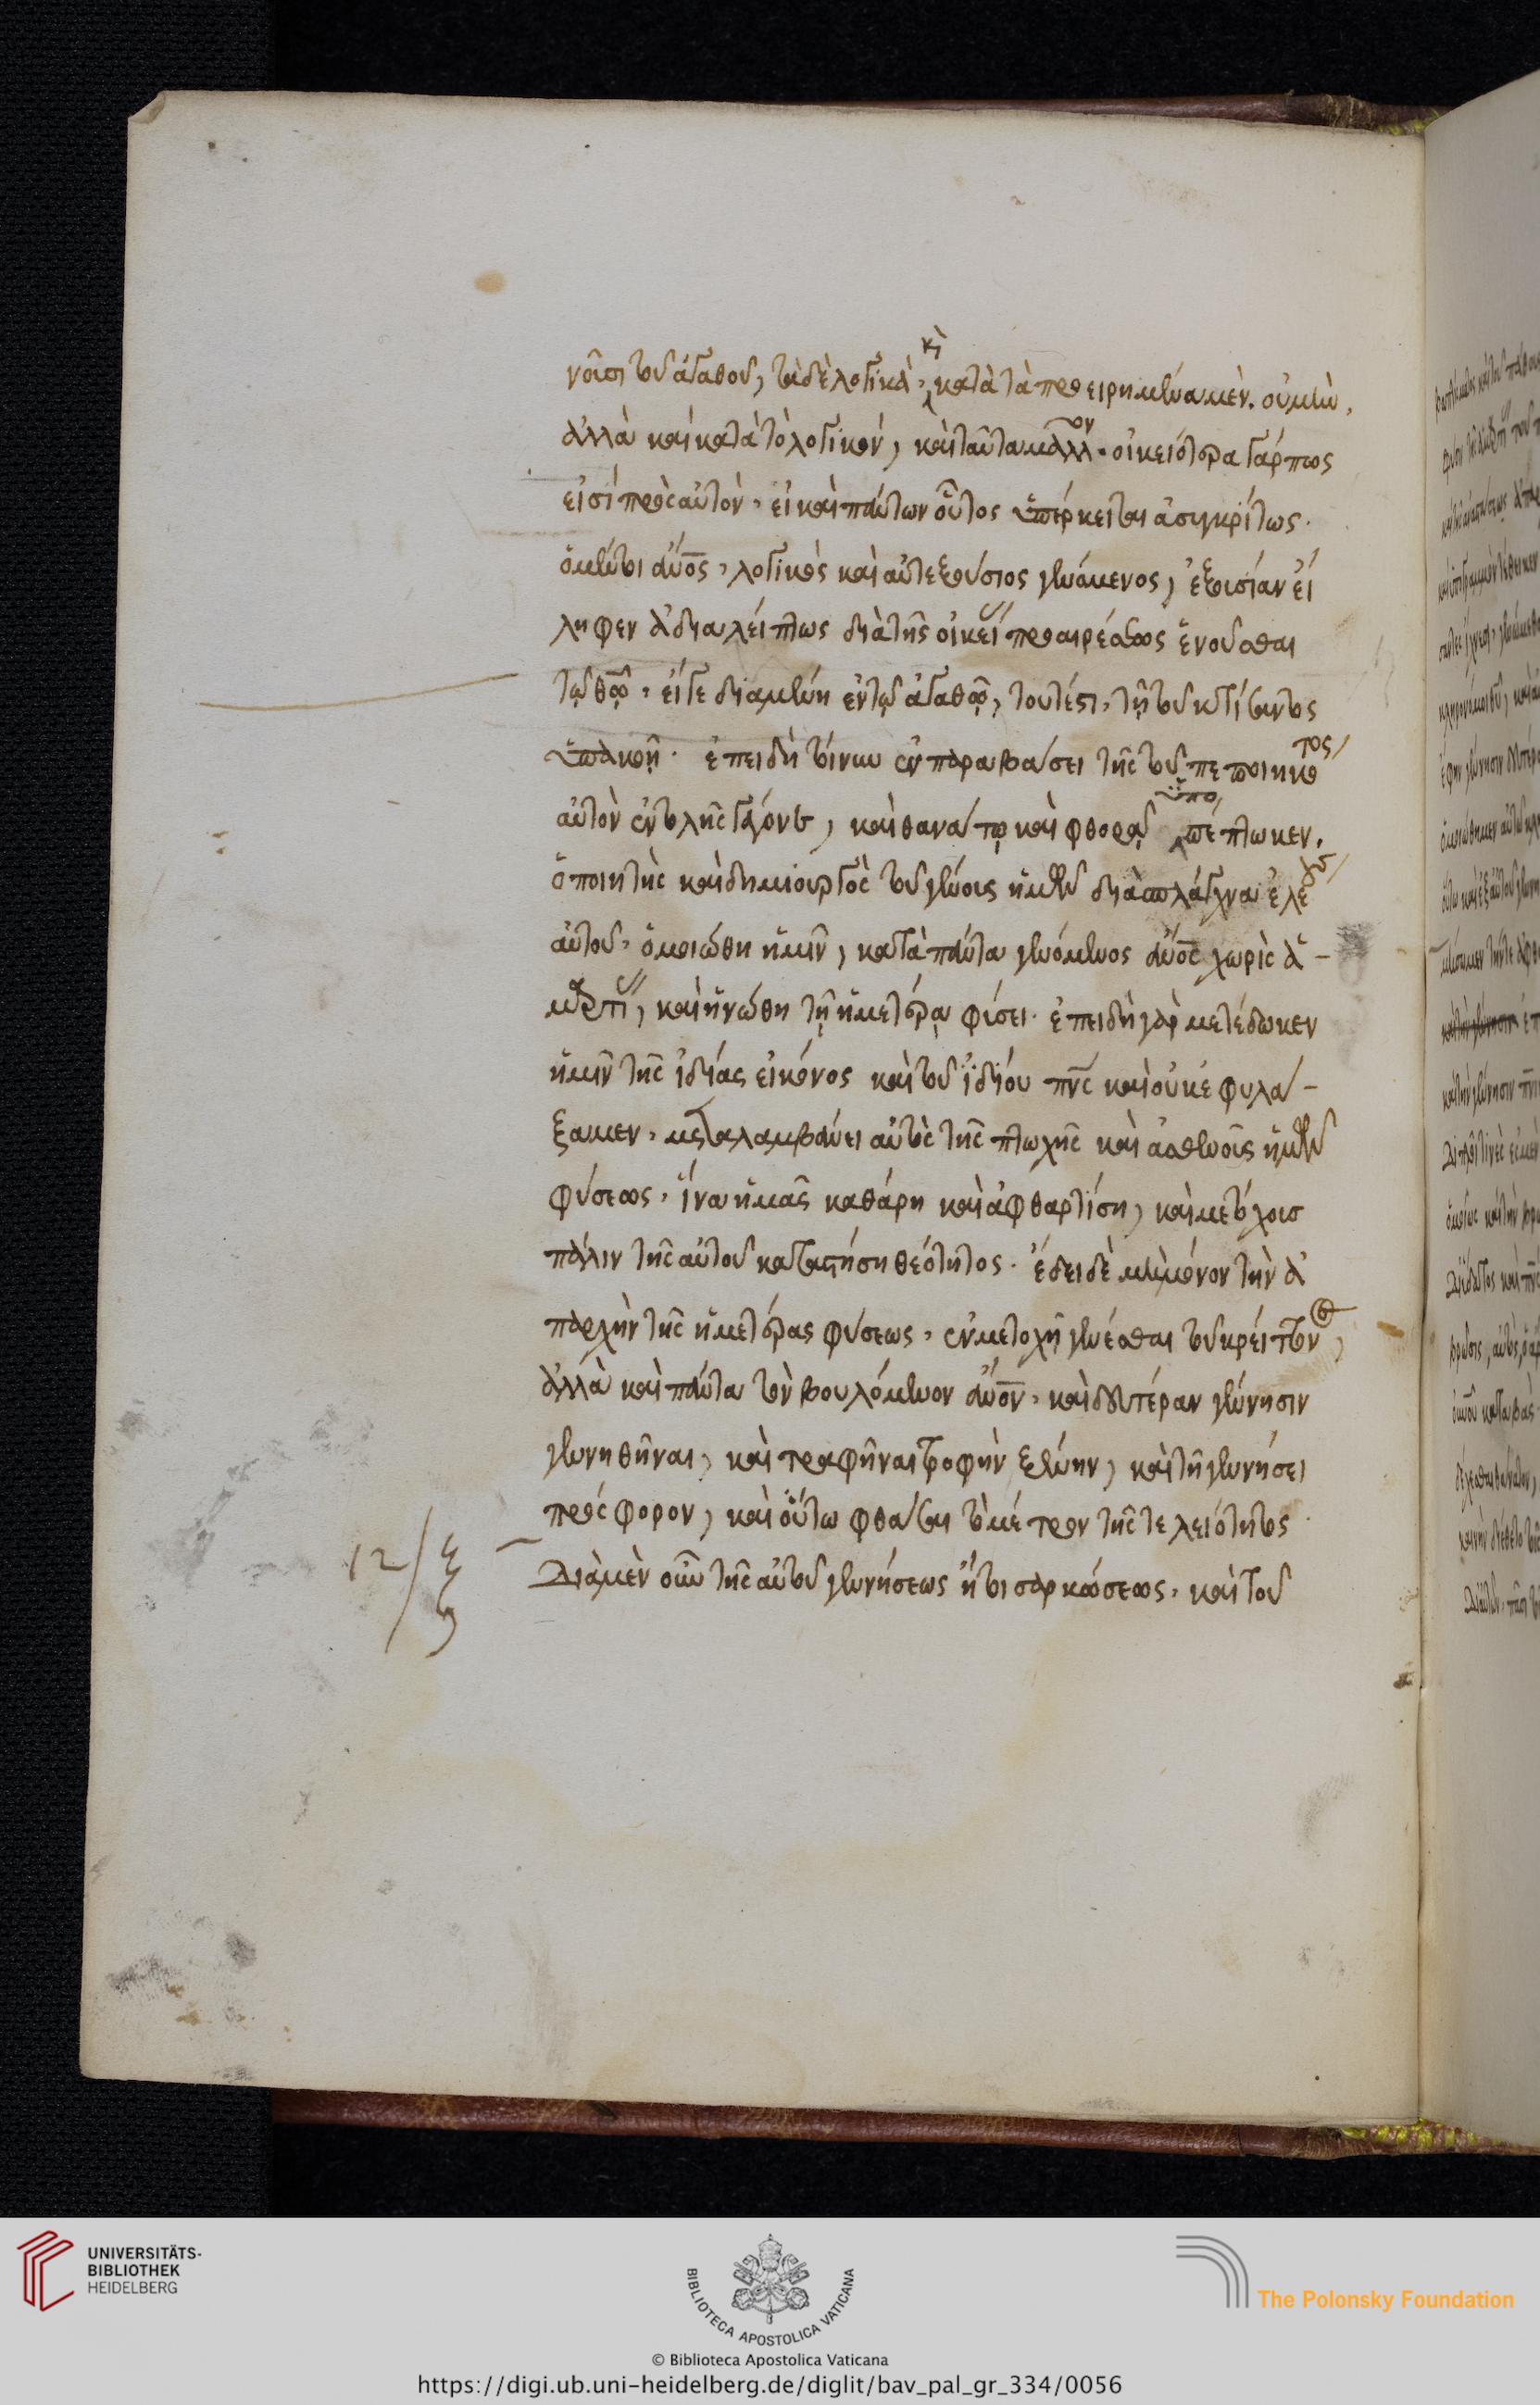 νοῦσι τοῦ ἀγαθοῦ, τὰ δὲ λογικὰ, καὶ κατὰ τὰ προειρημένα μὲν. οὐ μὴν,
ἀλλὰ καὶ κατὰ τὸ λογικόν, καὶ ταῦτα μᾶλλον. οἰκειότερα γάρ πως
εἰσί πρὸς αὐτὸν, εἰ καὶ πάντων οὗτος ὑπέρκειται ἀσυγκρίτως.
ὁ μέντοι ἄνος, λογικὸς καὶ αὐτεξούσιος γενόμενος, ἐξουσίαν εἴ
ληφεν ἀδιαλείπτως διὰ τῆς οἰκείας προαιρέσεως ἑνοῦσθαι
τῷ θεῷ, εἴγε διαμένη ἐν τῷ ἀγαθῷ, τουτέστι, τῇ τοῦ κτίσαντος
ὑπακοῇ. ἐπειδὴ τοίνυν ἐν παραβάσει τῆς τοῦ πεποιηκότος
αὐτὸν ἐντολῆς γέγονε, καὶ θανάτῳ καὶ φθορᾷ ὑποπέπτωκεν,
ὁ ποιητὴς καὶ δημιουργὸς τοῦ γένους ἡμῶν διὰ σπλάγχνα ἐλέους
αὐτοῦ, ὁμοιώθη ἡμῖν, κατὰ πάντα γενόμενος ἄνος χωρὶς ἁ-
μαρτίας, καὶ ἡνώθη τῇ ἡμετέρᾳ φύσει. ἐπειδὴ γὰρ μετέδωκεν
ἡμῖν τῆς ἰδίας εἰκόνος καὶ τοῦ ἰδίου πνς καὶ οὐκ ἐφυλά-
ξαμεν, μεταλαμβάνει αὐτὸς τῆς πτωχῆς καὶ ἀσθενοῦς ἡμῶν
φύσεως, ἵνα ἡμᾶς καθάρη καὶ ἀφθαρτίση, καὶ μετόχους
πάλιν τῆς αὐτοῦ καταστήση θεότητος. ἔδει δὲ μὴ μόνον τὴν ἀ
παρχὴν τῆς ἡμετέρας φύσεως, ἐν μετοχῇ γενέσθαι τοῦ κρείττονος,
ἀλλὰ καὶ πάντα τὸν βουλόμενον ἄνον, καὶ δευτέραν γέννησιν
γεννηθῆναι, καὶ τραφῆναι τροφὴν ξένην, καὶ τῇ γεννήσει
πρόσφορον, καὶ οὕτω φθάσαι τὸ μέτρον τῆς τελειότητος.
12/
Διὰ μὲν οὖν τῆς αὐτοῦ γεννήσεως ἤτοι σαρκώσεως, καὶ τοῦ
UNIVERSITÄTS-
BIBLIOTHEK
HEIDELBERG
BIBLIOTECA APOSTOLICA VATICANA
The Polonsky Foundation
© Biblioteca Apostolica Vaticana
https://digi.ub.uni-heidelberg.de/diglit/bav_pal_gr_334/0056